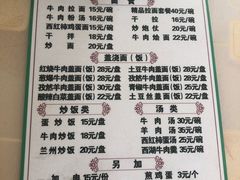 面食
牛肉拉面 15元/碗 精品拉面套餐40元/碗
牛肉粉汤 16元/碗 干拉 16元/碗
西红柿鸡蛋面15元/碗 炒炮仗 20元/碗
干拌 18元/碗 牛肉烩面 22元/碗
炒面 20元/盘
盖浇面(饭)
红烧牛肉盖面(饭) 28元/盘 土豆牛肉盖面(饭) 25元/盘
葱爆牛肉盖面(饭) 28元/盘 孜然羊肉盖面(饭) 30元/盘
孜然牛肉盖面(饭) 30元/盘 青椒牛肉盖面(饭) 25元/盘
酸辣白菜盖面(饭) 20元/盘 土豆丝盖面(饭) 20元/盘
炒饭类 汤类
蛋炒饭 15元/盘 牛肉汤 30元/碗
羊肉汤 35元/碗
牛肉炒饭 18元/盘 西红柿蛋汤 25元/碗
兰州炒饭 20元/盘 西湖牛肉羹 35元/碗
另加
加肉 15元/份 煎鸡蛋 3元/个